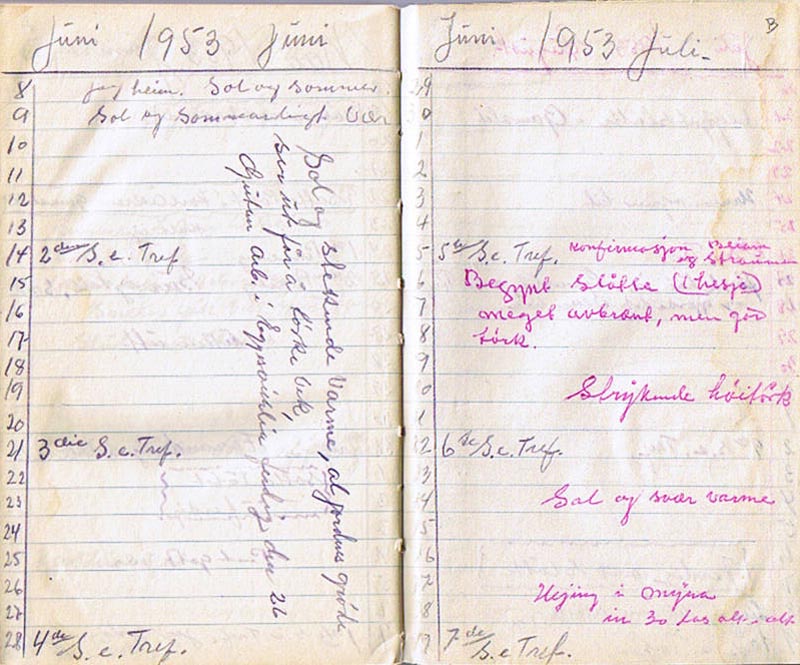 Juni 1953 Juni
8 jeg heim. Sol og sommer
9 Sol og sommarligt Vær
10
11
12
13
14 2den S. e. Tref.
15
16
17
18
19
20
21 3die S. e. Tref.
22
23
24
25
26
27
28 4de S. e. Tref.
Sol og stekende Varme, al jordens grøde
ser ut for å tørke bek,
arb. i den 26
Juni 1953 Juli
B
29
0
1
2
3
4
5 5te S. e. Tref. Konfirmasjon
og Straumen
6 Begynt Slåtta (i hesje)
7 meget avbrant, men god
8 tørk.
9
10 Strykende höitörk
1
12 6te S. e. Tref.
13
14 Sol og svær varme
5
16
7 Hejing i myra
8 in 30 las alt. alt.
19 7de S. e. Tref.